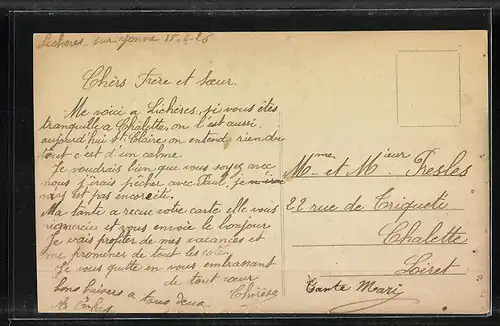 Lichères sur Yonne 15-9-25
Chers Frère et sœur.
Me voici a Lichères, si vous êtes
tranquille a Chalette, on l'est aussi.
aujourd'hui St Claire on entend rien du
tout c'est d'un calme.
Je voudrais bien que vous soyez avec
nous j'irais pêcher avec Paul, je
my est pas encore
Ma tante a recue votre carte elle vous
remercie et vous envoie le bonjour
Je vais profiter de mes vacances et
me prominer de tout les cotés
Je vous quitte en vous embrassant
de tout cœur
bons baisers a tous deux
Thérèse
Mme et Mr Fresles
22 rue de Triqueti
Chalette
Loiret
Tante Mary